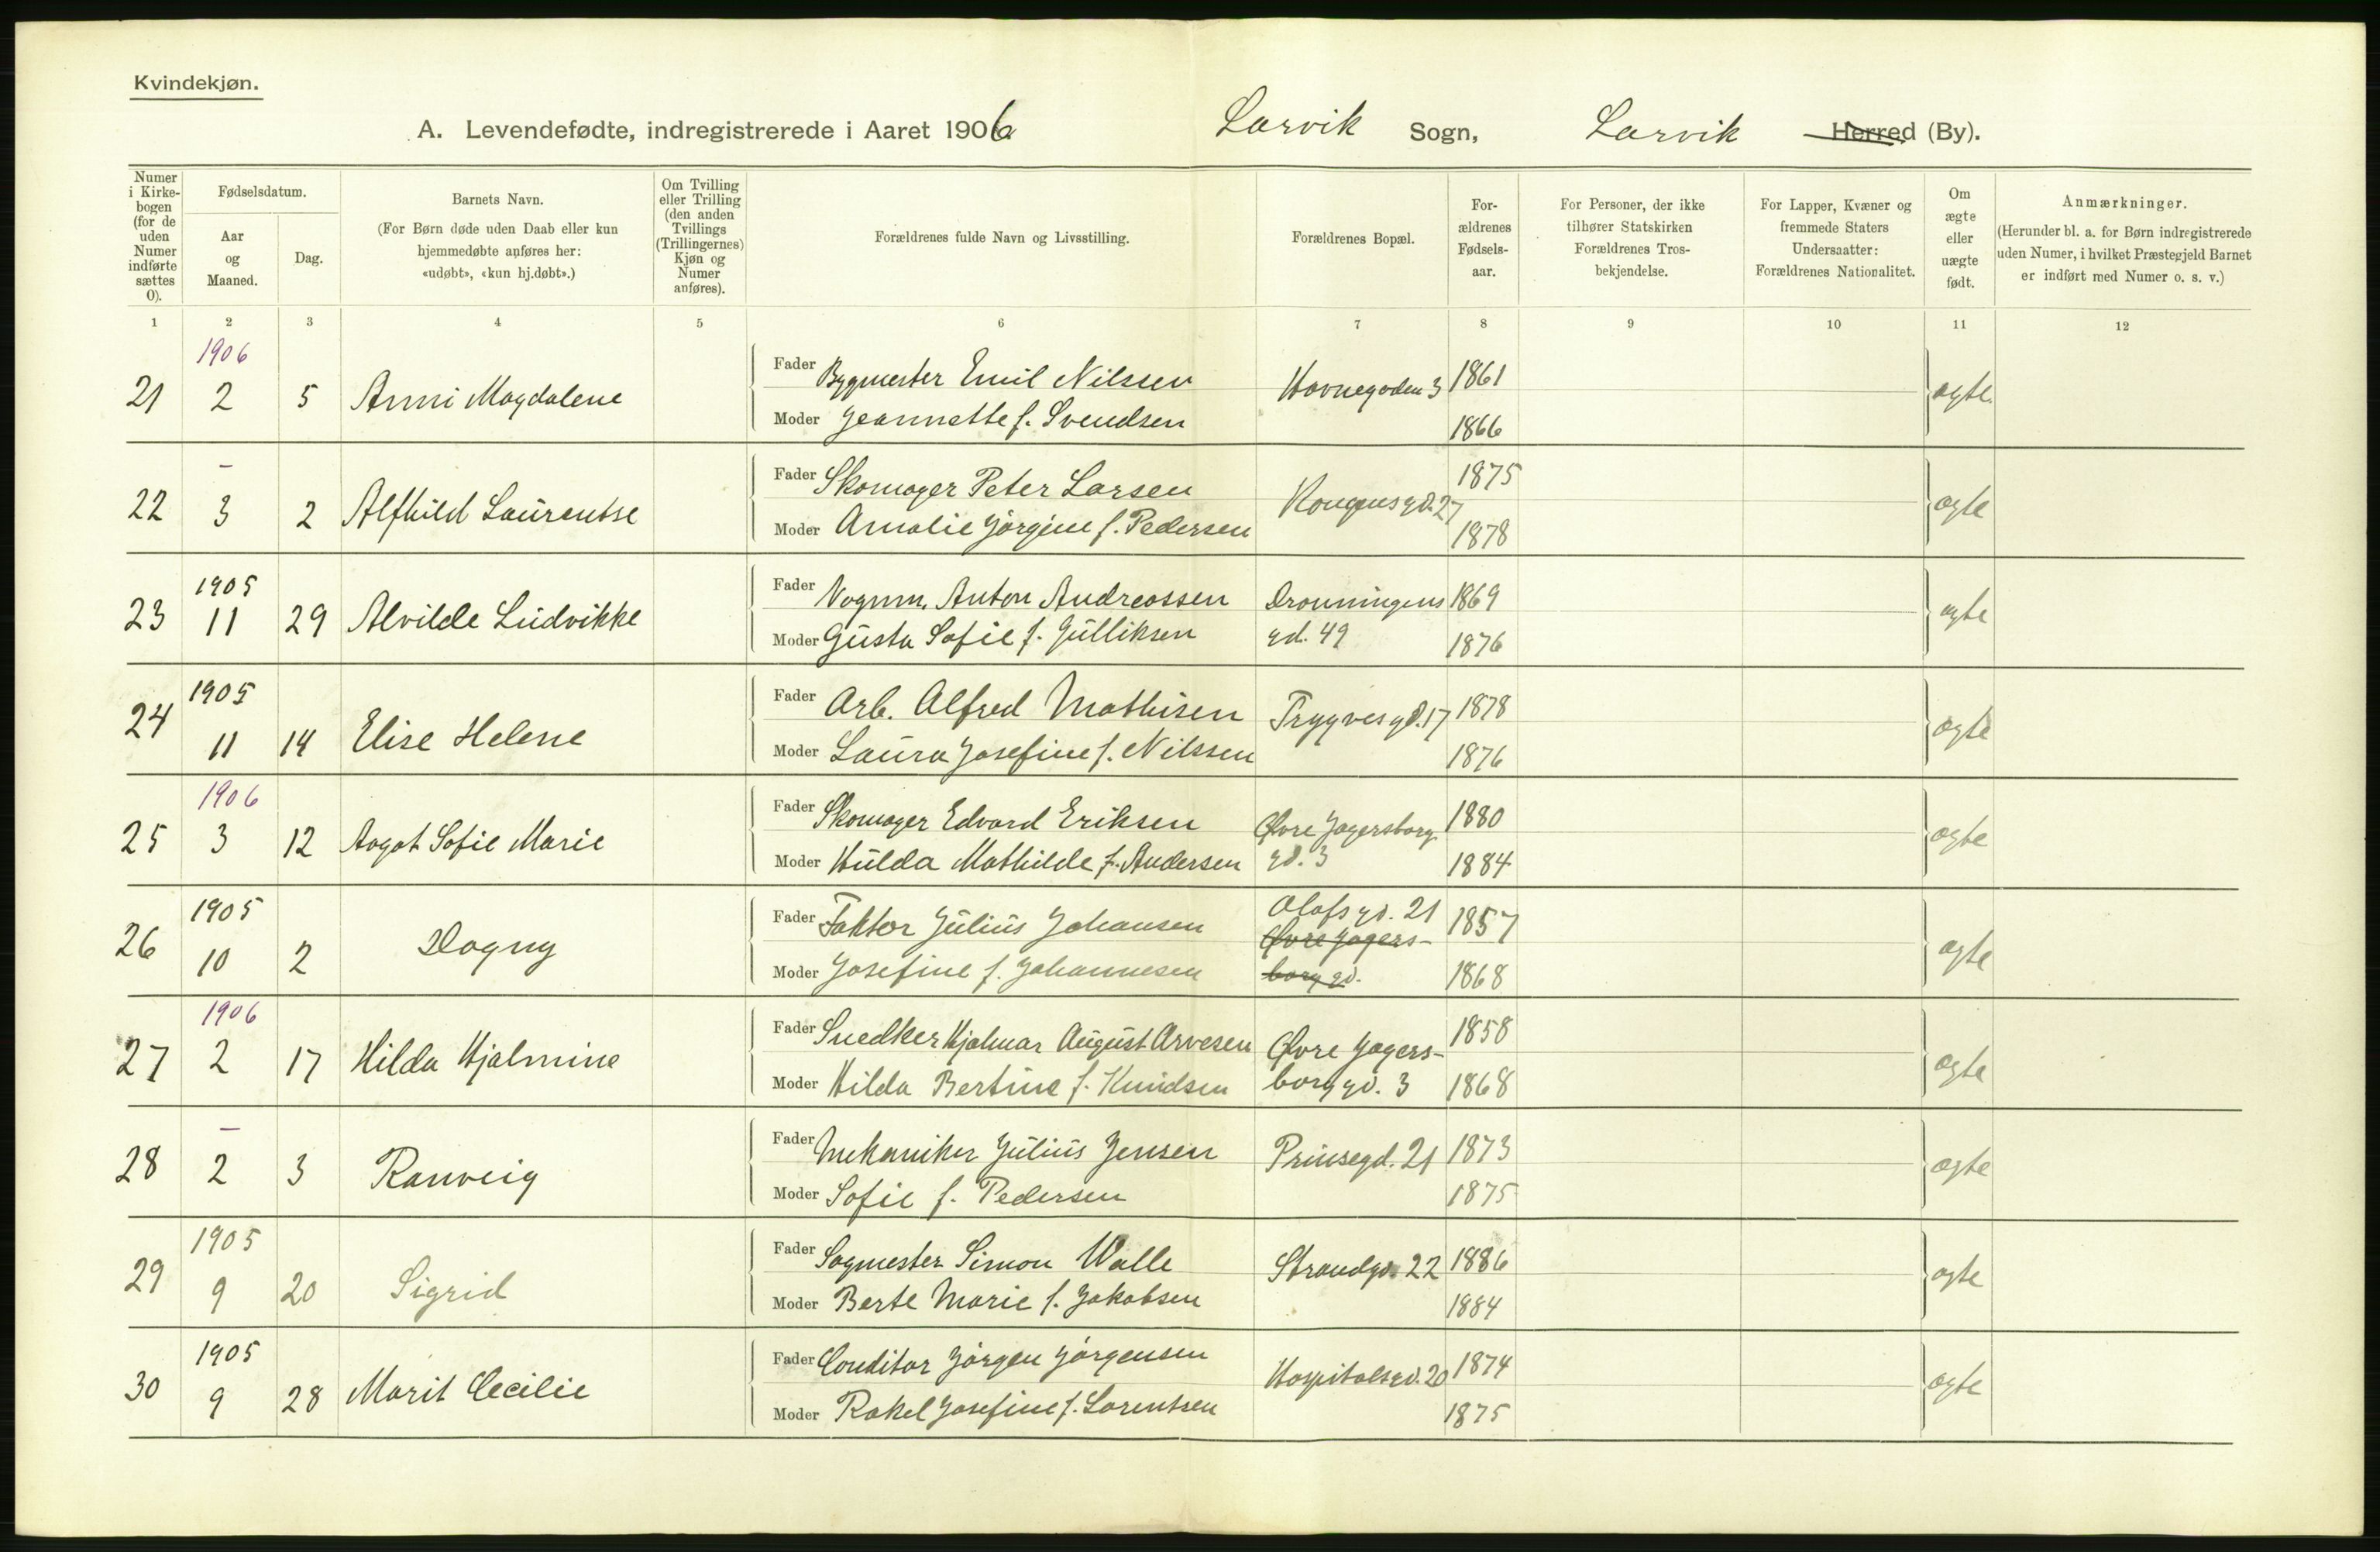 Kvindekjøn.
A. Levendefødte, indregistrerede i Aaret 1906 Larvik Sogn, Larvik Herred (By).
Numer i Kirke-bogen (for de uden Numer indførte sættes 0).
Fødselsdatum.
Aar og Maaned.
Dag.
Barnets Navn.
(For Børn døde uden Daab eller kun hjemmedøbte anføres her: «udøbt», «kun hj.døbt».)
Om Tvilling eller Trilling (den anden Tvillings (Trillingernes) Kjøn og Numer anføres).
Forældrenes fulde Navn og Livsstilling.
Forældrenes Bopæl.
For-ældrenes Fødsels-aar.
For Personer, der ikke tilhører Statskirken Forældrenes Tros-bekjendelse.
For Lapper, Kvæner og fremmede Staters Undersaatter: Forældrenes Nationalitet.
Om ægte eller uægte født.
Anmærkninger.
(Herunder bl. a. for Børn indregistrerede uden Numer, i hvilket Præstegjeld Barnet er indført med Numer o. s. v.)
1 2 3 4 5 6 7 8 9 10 11 12
1906
21 2 5 Anni Magdalene Fader Bygmester Emil Nilssen Havnegaden 3 1861 ægte.
Moder Jeannette f. Svendsen 1866
–
22 3 2 Alfhild Laurentse Fader Skomager Peter Larsen Kongensgd. 27 1875 ægte
Moder Amalie Jørgine f. Pedersen 1878
1905
23 11 29 Alvilde Ludvikke Fader Vognm. Anton Andreassen Dronningens 1869 ægte
Moder Gusta Sofie f. Gulliksen gd. 49 1876
1905
24 11 14 Elise Helene Fader Arb. Alfred Mathisen Trygvesgd. 17 1878 ægte
Moder Laura Josefine f. Nilssen 1876
1906
25 3 12 Aagot Sofie Marie Fader Skomager Edvard Eriksen Øvre Jagersborg 1880 ægte
Moder Hulda Mathilde f. Andersen gd. 3 1884
1905
26 10 2 Dagny Fader Faktor Julius Johansen Olafsgd. 21 1857 ægte
Øvre Jagers-
Moder Josefine f. Johannesen borg gd. 1868
1906
27 2 17 Hilda Hjalmine Fader Snedker Hjalmar August Arvesen Øvre Jagers- 1858 ægte
Moder Hilda Bertine f. Knudsen borg gd. 3 1868
–
28 2 3 Ranveig Fader Mekaniker Julius Jensen Prinsegd. 21 1873 ægte
Moder Sofie f. Pedersen 1875
1905
29 9 20 Sigrid Fader Sagmester Simon Walle Strandgd. 22 1886 ægte
Moder Berte Marie f. Jakobsen 1884
1905
30 9 28 Marit Cecilie Fader Conditor Jørgen Jørgensen Hospitalsgd. 20 1874 ægte
Moder Rakel Josefine f. Larentsen 1875